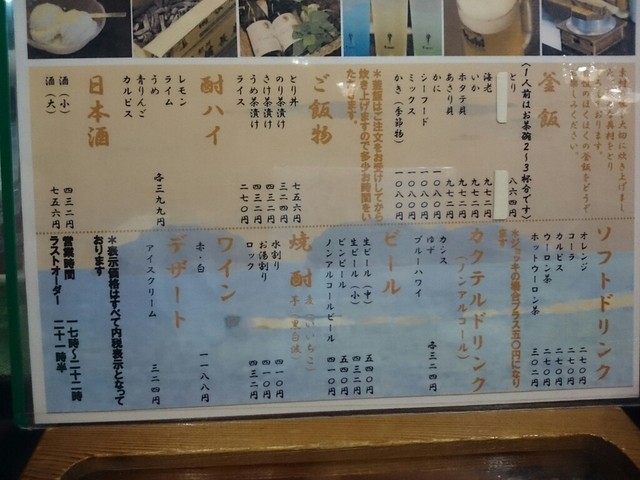 大切に炊き上げまし
ほくほくの釜飯をどうぞ
お楽しみください。
釜飯
(1人前はお茶碗2〜3杯分です)
とり 八六四円
海老 九七二円
いか 九七二円
ホタテ貝 九七二円
あさり貝 九七二円
かに 一〇八〇円
シーフード 一〇八〇円
ミックス 一〇八〇円
かき(季節物) 一〇八〇円
*釜飯はご注文をお受けしてから
炊き上げますので多少お時間をい
ただきます。
ご飯物
とり丼 七五六円
のり茶漬け 三二四円
さけ茶漬け 四三二円
うめ茶漬け 四三二円
ライス 二七〇円
酎ハイ
レモン
ライム
うめ
青りんご
カルピス
各三九九円
日本酒
酒(小) 四三二円
酒(大) 七五六円
ソフトドリンク
オレンジ 二七〇円
コーラ 二七〇円
カルピス 二七〇円
ウーロン茶 二七〇円
ホットウーロン茶 三〇二円
*ジョッキの場合プラス五〇円になり
ます
カクテルドリンク
(ノンアルコール)
カシス
ゆず
ブルーハワイ
各三二四円
ビール
生ビール(中) 五四〇円
生ビール(小) 四三二円
ビンビール 五四〇円
ノンアルコールビール 四一〇円
焼酎 麦(いいちこ)
芋(黒白波)
水割り 四一〇円
お湯割り 四一〇円
ロック 四三二円
ワイン
赤・白 一一八八円
デザート
アイスクリーム 三二四円
*表示価格はすべて内税表示となって
おります
営業時間 一七時〜二十二時
ラストオーダー 二十一時半